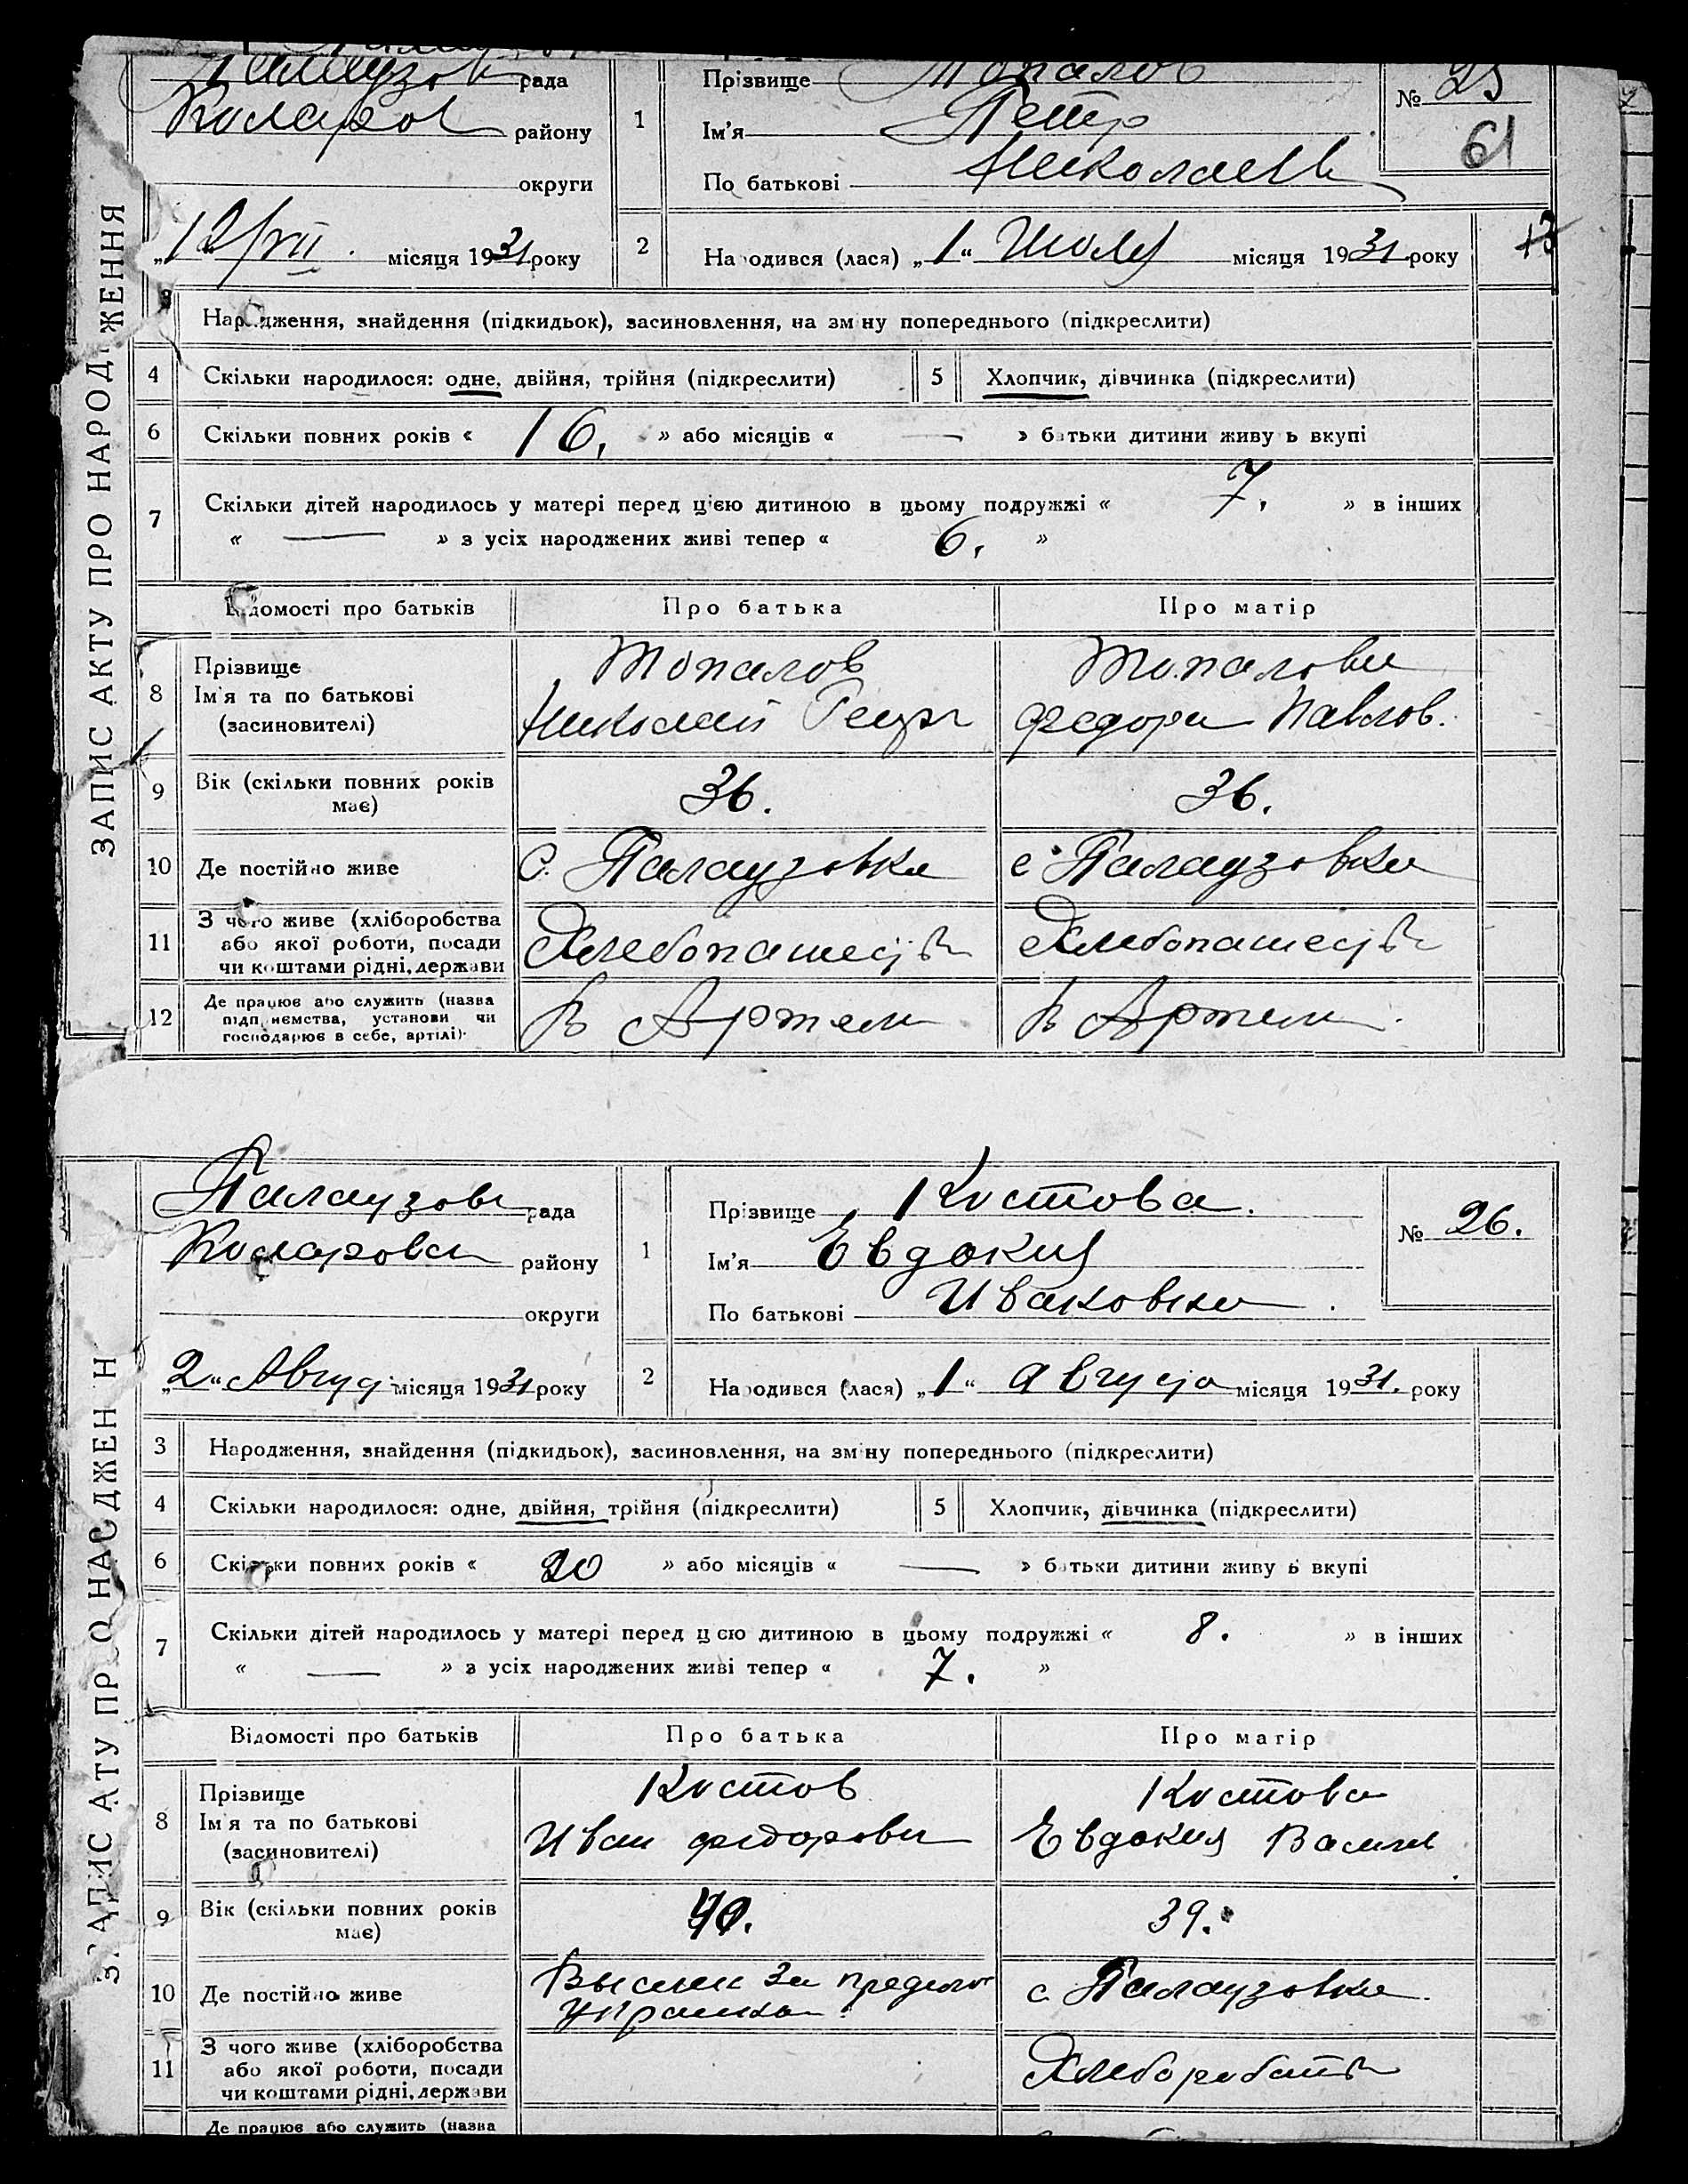 ЗАПИС АКТУ ПРО НАРОДЖЕННЯ
Палаузов рада
Коларов району
округи
„12/VII. місяця 1931 року
1
Прізвище Топалов
Ім'я Петр
По батькові Николаев
№ 25
61
2
Народився (лася) „1“ Июля місяця 1931 року
13
3
Народження, знайдення (підкидьок), засиновлення, на зміну попереднього (підкреслити)
4 Скільки народилося: одне, двійня, трійня (підкреслити) 5 Хлопчик, дівчинка (підкреслити)
6 Скільки повних років « 16, » або місяців « — » батьки дитини живуть вкупі
7 Скільки дітей народилось у матері перед цією дитиною в цьому подружжі « 7, » в інших
« — » з усіх народжених живі тепер « 6, »
Відомості про батьків Про батька Про матір
8 Прізвище Топалов Топалова
Ім'я та по батькові Николай Георг Федора Павлов.
(засиновителі)
9 Вік (скільки повних років має) 36. 36.
10 Де постійно живе с. Палаузовка с. Палаузовка
11 З чого живе (хліборобства
або якої роботи, посади Хлебопашест Хлебопашест
чи коштами рідні, держави
12 Де працює або служить (назва
підприємства, установи чи В Артели В Артели.
господарює в себе, артілі)
ЗАПИС АТУ ПРО НАСДЖЕН Н
Палаузов рада
Коларовск району
округи
„2“ Август місяця 1931 року
1
Прізвище Костова.
Ім'я Евдокия
По батькові Ивановна.
№ 26.
2
Народився (лася) „1“ Августа місяця 1931. року
3 Народження, знайдення (підкидьок), засиновлення, на зміну попереднього (підкреслити)
4 Скільки народилося: одне, двійня, трійня (підкреслити) 5 Хлопчик, дівчинка (підкреслити)
6 Скільки повних років « 20 » або місяців « — » батьки дитини живуть вкупі
7 Скільки дітей народилось у матері перед цією дитиною в цьому подружжі « 8. » в інших
« — » з усіх народжених живі тепер « 7. »
Відомості про батьків Про батька Про матір
8 Прізвище Костов Костова
Ім'я та по батькові Иван Федорови Евдокия Васил
(засиновителі)
9 Вік (скільки повних років має) 40. 39.
10 Де постійно живе Выслан за предел с. Палаузовка.
Украины.
11 З чого живе (хліборобства
або якої роботи, посади Хлеборобств
чи коштами рідні, держави
Де працює або служить (назва